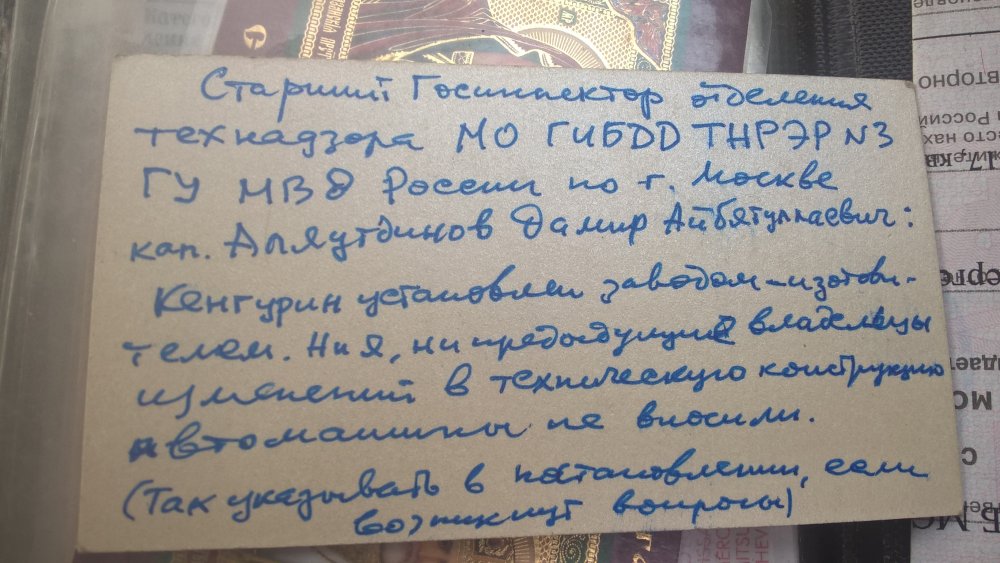 Старший Госинспектор отделения
технадзора МО ГИБДД ТНРЭР №3
ГУ МВД России по г. Москве
кап. Аляутдинов Дамир Айбятуллаевич:
Кенгурин установлен заводом-изготови-
телем. Ни я, ни предыдущие владельцы
изменений в техническую конструкцию
автомашины не вносили.
(Так указывать в постановлении, если
возникнут вопросы)
вторно
России
сто нах
17 кв
МО
С